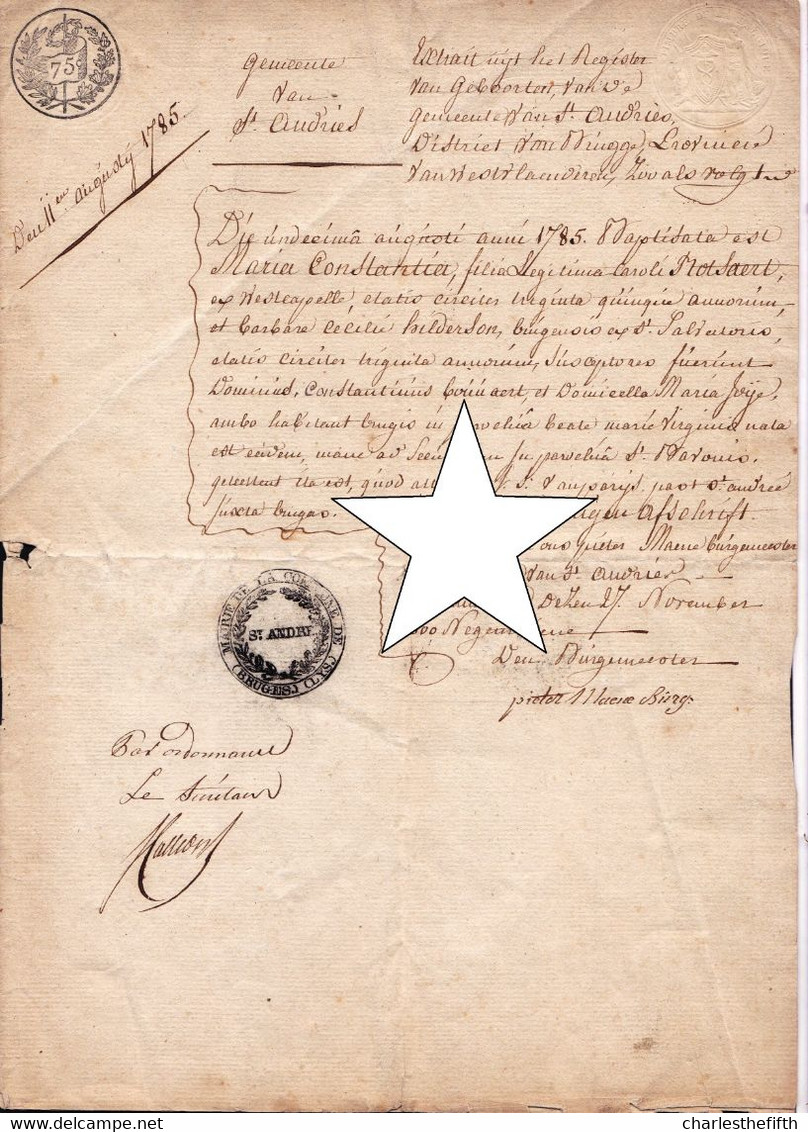 75
Gemeente
van
St. Andries
Extrait uijt het Register
van Geboorten, van de
gemeente van St. Andries,
District van Brugge, Provincie
van Westvlaenderen, Zoo als volgt
Den 11en augusty 1785.
Die undecima augusti anni 1785. Baptisata est
Maria Constantia, filia Legitima Caroli Rotsaert,
ex Westcapelle, etatis circiter triginta quinque annorum,
et barbare Cécilie hilderson, brugensis ex St. Salvatoris,
etatis circiter triginta annorum, Susceptores fuerunt
Dominus, Constantinus et Domicella Maria
ambo habitant brugis in beate marie Virginis nata
est eadem, mane ad In parochia St. Bavonis.
ita est, quod S. vanparijs, past St. andreé
Juxta brugas.
afschrift
ons pieter Maene burgemeester
van St. Andries
Dezen 27. November
Den Burgemeester
pieter Maene Burg.
MAIRIE DE LA COMMUNE DE
ST ANDRÉ
(BRUGES) (LYS)
Par ordonnance
Le
charlesthefifth